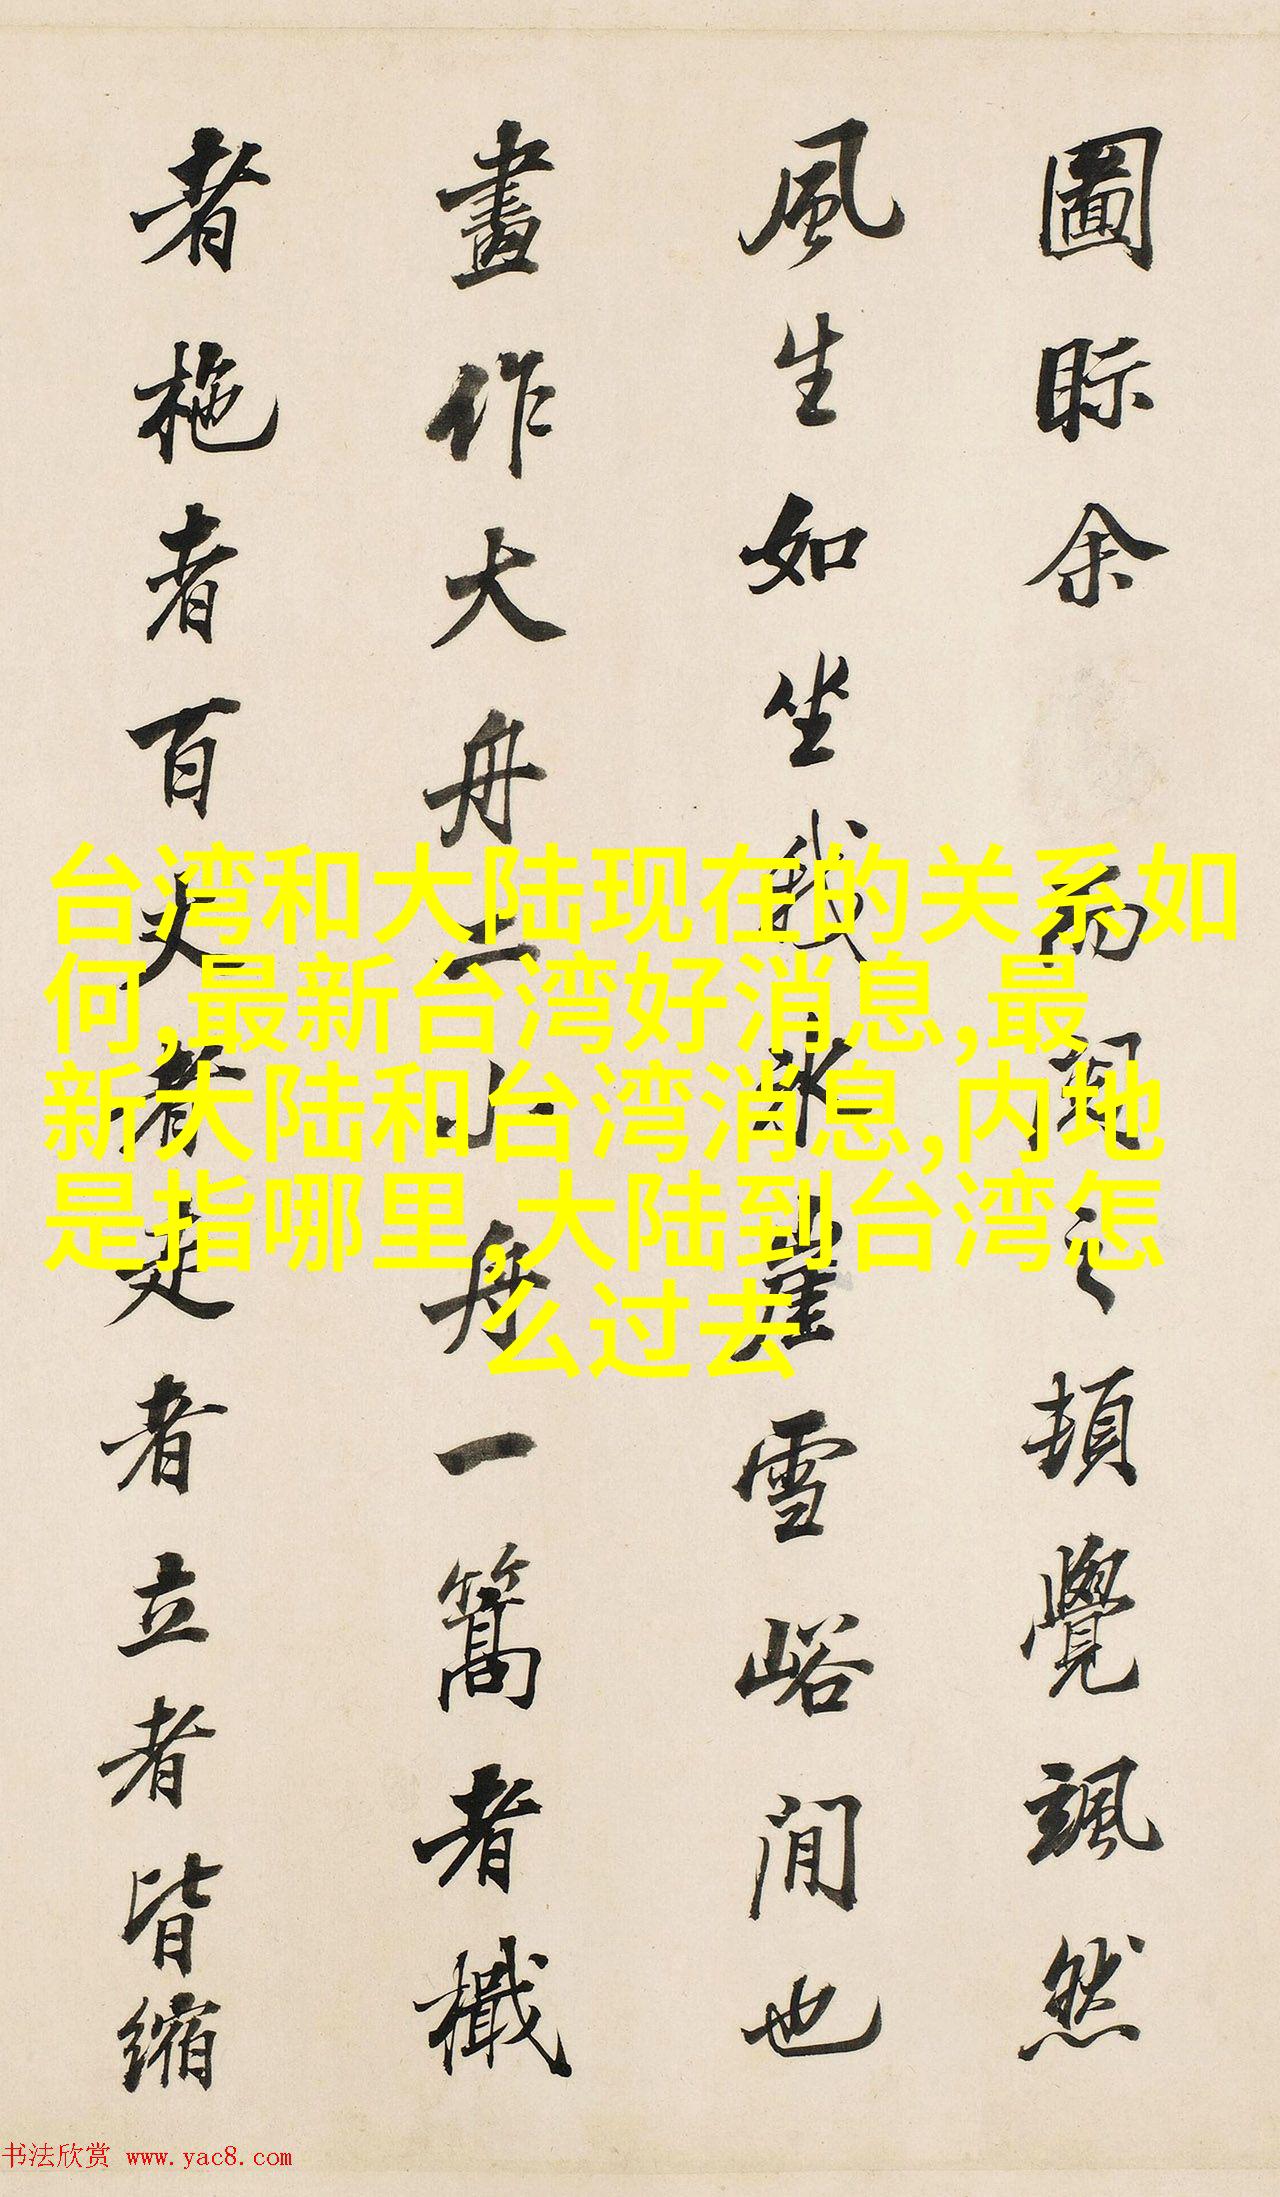 圖眎余
翁閱之頓覺颯然
風生如坐我冰崖雪峪間也
畫作大舟二小舟一篙者檝
者柂者百丈者走者立者皆縮
台湾和大陆现在的关系如
何,最新台湾好消息,最
新大陆和台湾消息,内地
是指哪里,大陆到台湾怎
么过去
书法欣赏 www.yac8.com